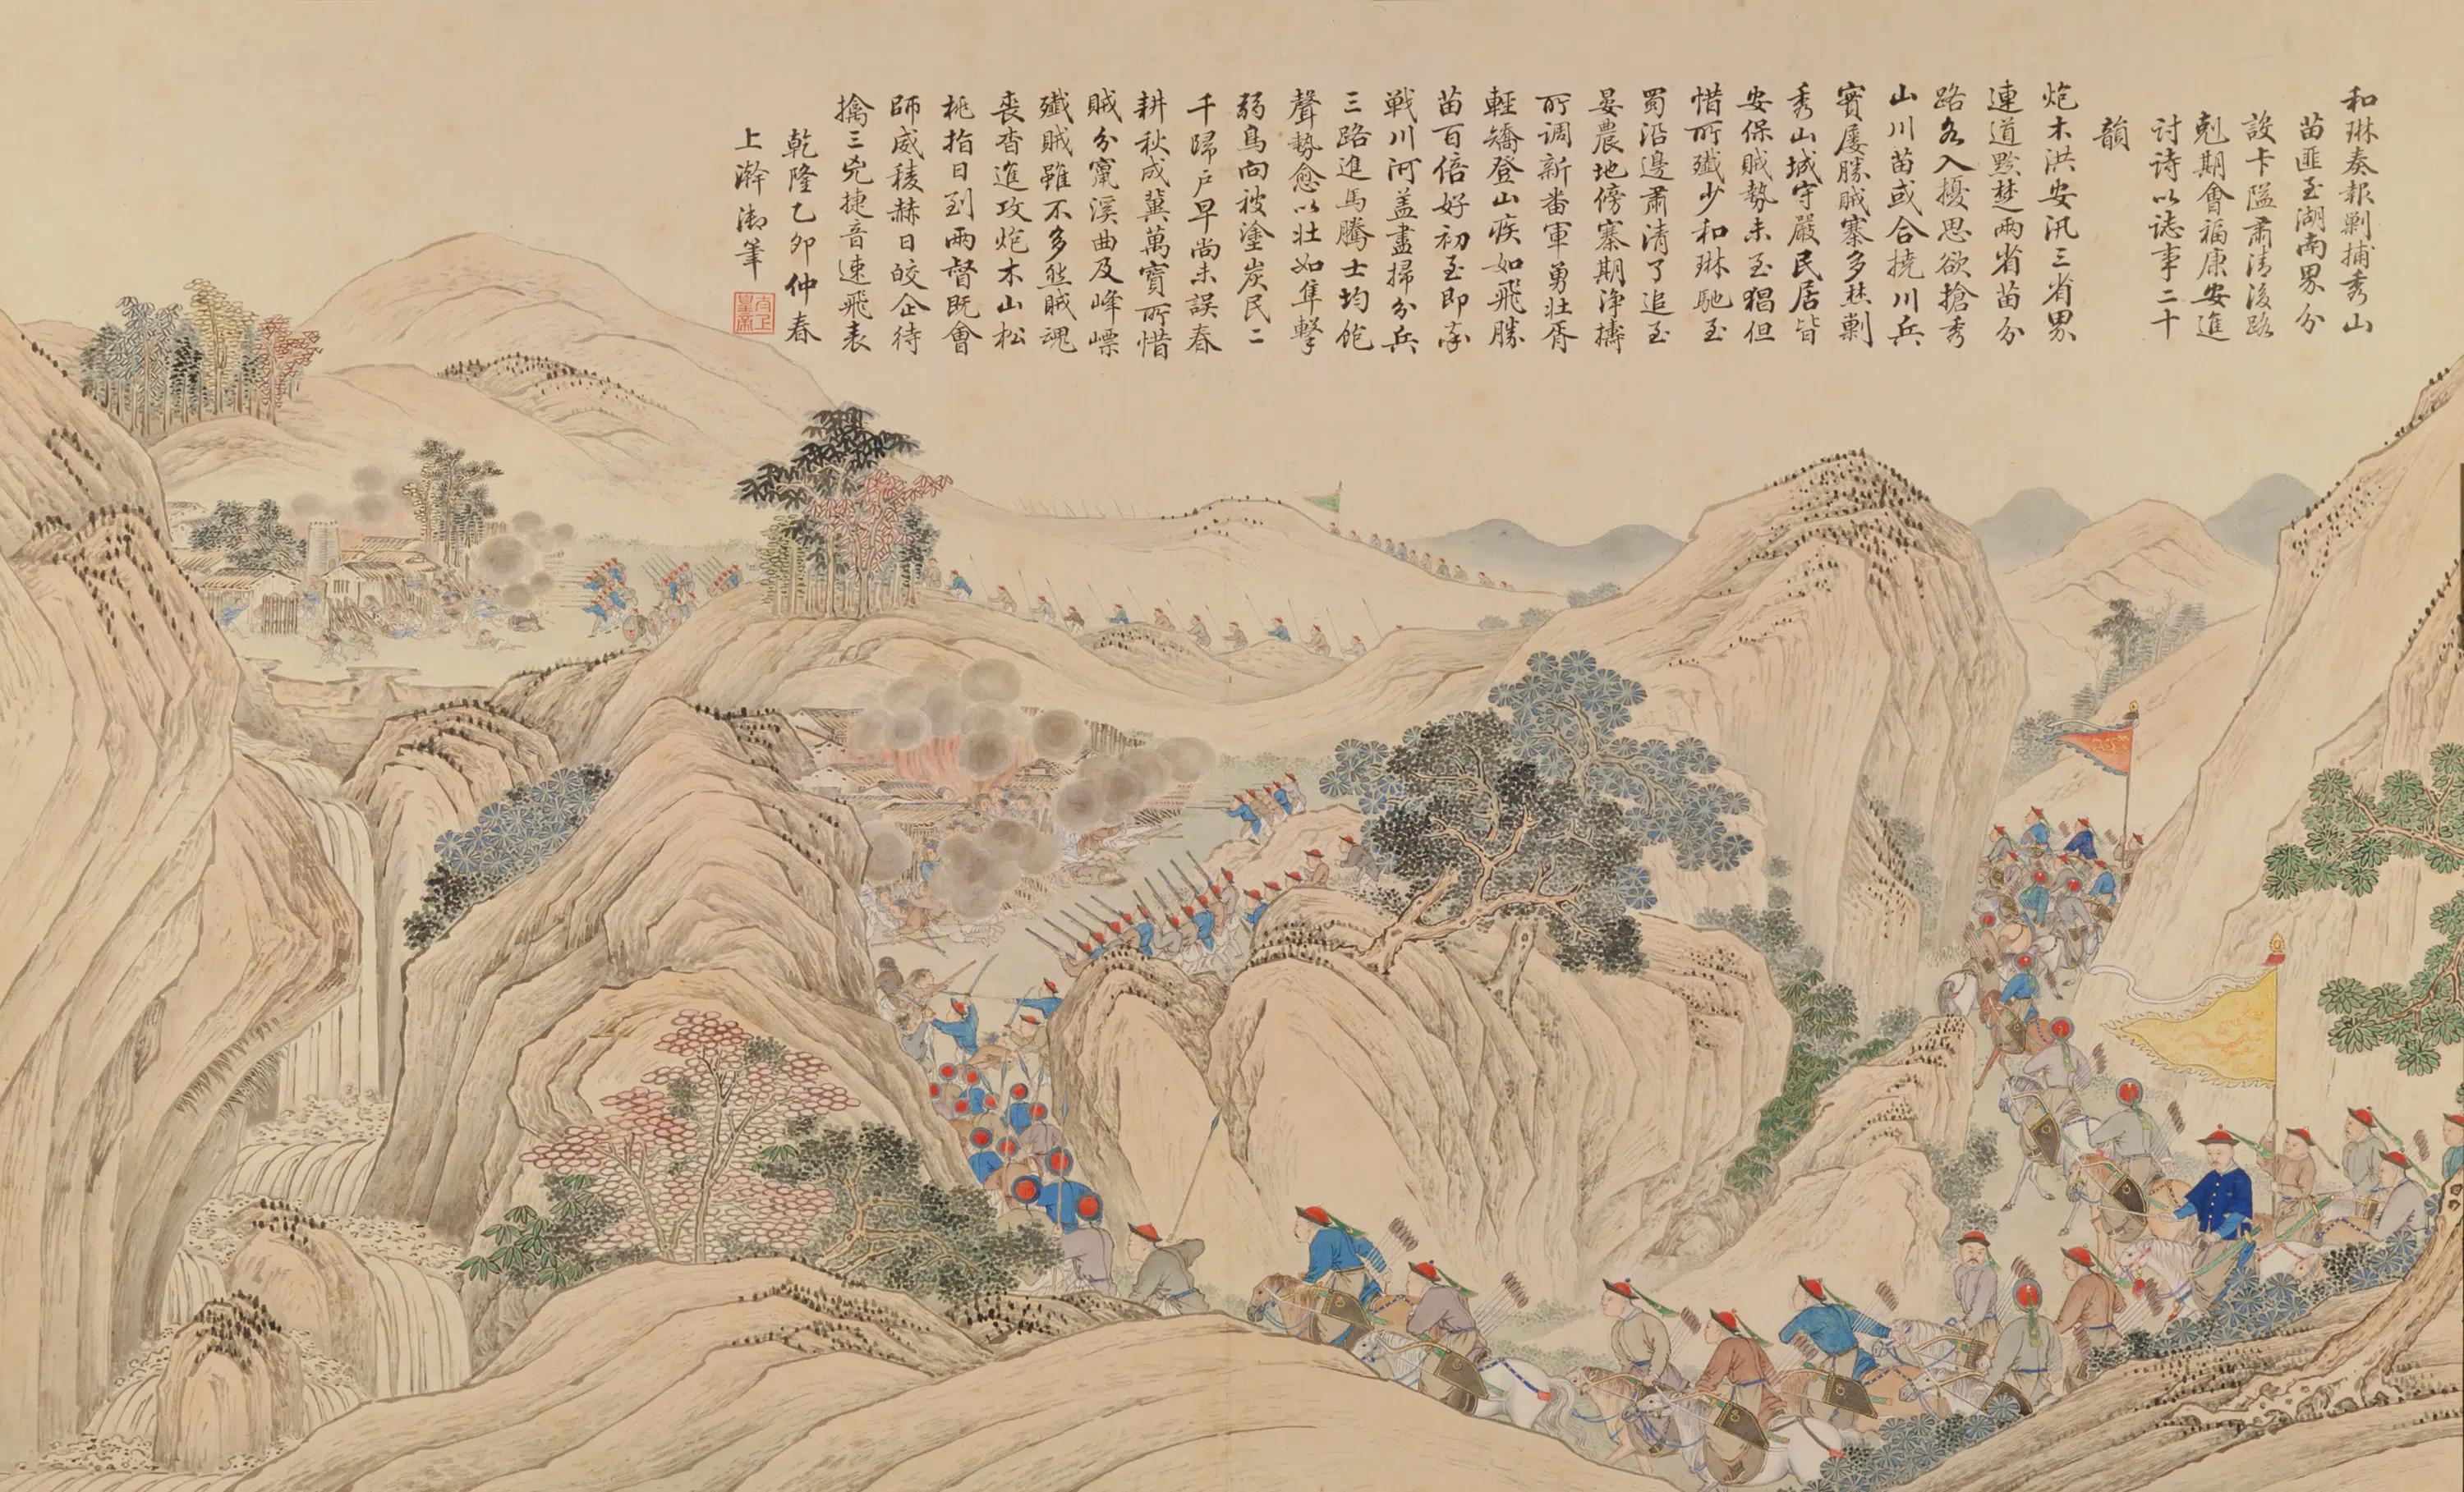 和琳奏報剿捕秀山
苗匪至湖南界分
設卡隘肅清後路
剋期會福康安進
討詩以誌事二十
韻
炮木洪安汛三省界
連道黔楚兩省苗分
路各入擾思欲搶秀
山川苗或合撓川兵
實屢勝賊寨多焚剿
秀山城守嚴民居皆
安保賊勢未至猖但
惜所殲少和琳馳至
蜀沿邊肅清了追至
晏農地傍寨期淨擣
所调新畨軍勇壯胥
輕矯登山疾如飛勝
苗百倍好初至即奮
戰川河盖盡掃分兵
三路進馬騰士均飽
聲勢愈以壯如隼擊
弱鳥向被塗炭民二
千歸戶早尚未誤春
耕秋成冀萬寳所惜
賊分竄溪曲及峰嶫
殲賊雖不多愁賊魂
喪沓進攻炮木山松
桃指日到兩督既會
師威稜赫日皎企待
擒三兇捷音速飛表
乾隆乙卯仲春
上澣御筆
太上皇帝